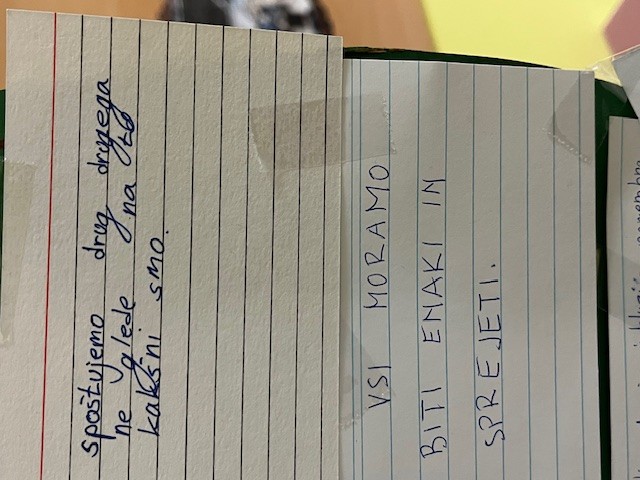 spoštujemo drug drugega
ne glede na to
kakšni smo.
VSI MORAMO
BITI ENAKI IN
SPREJETI.